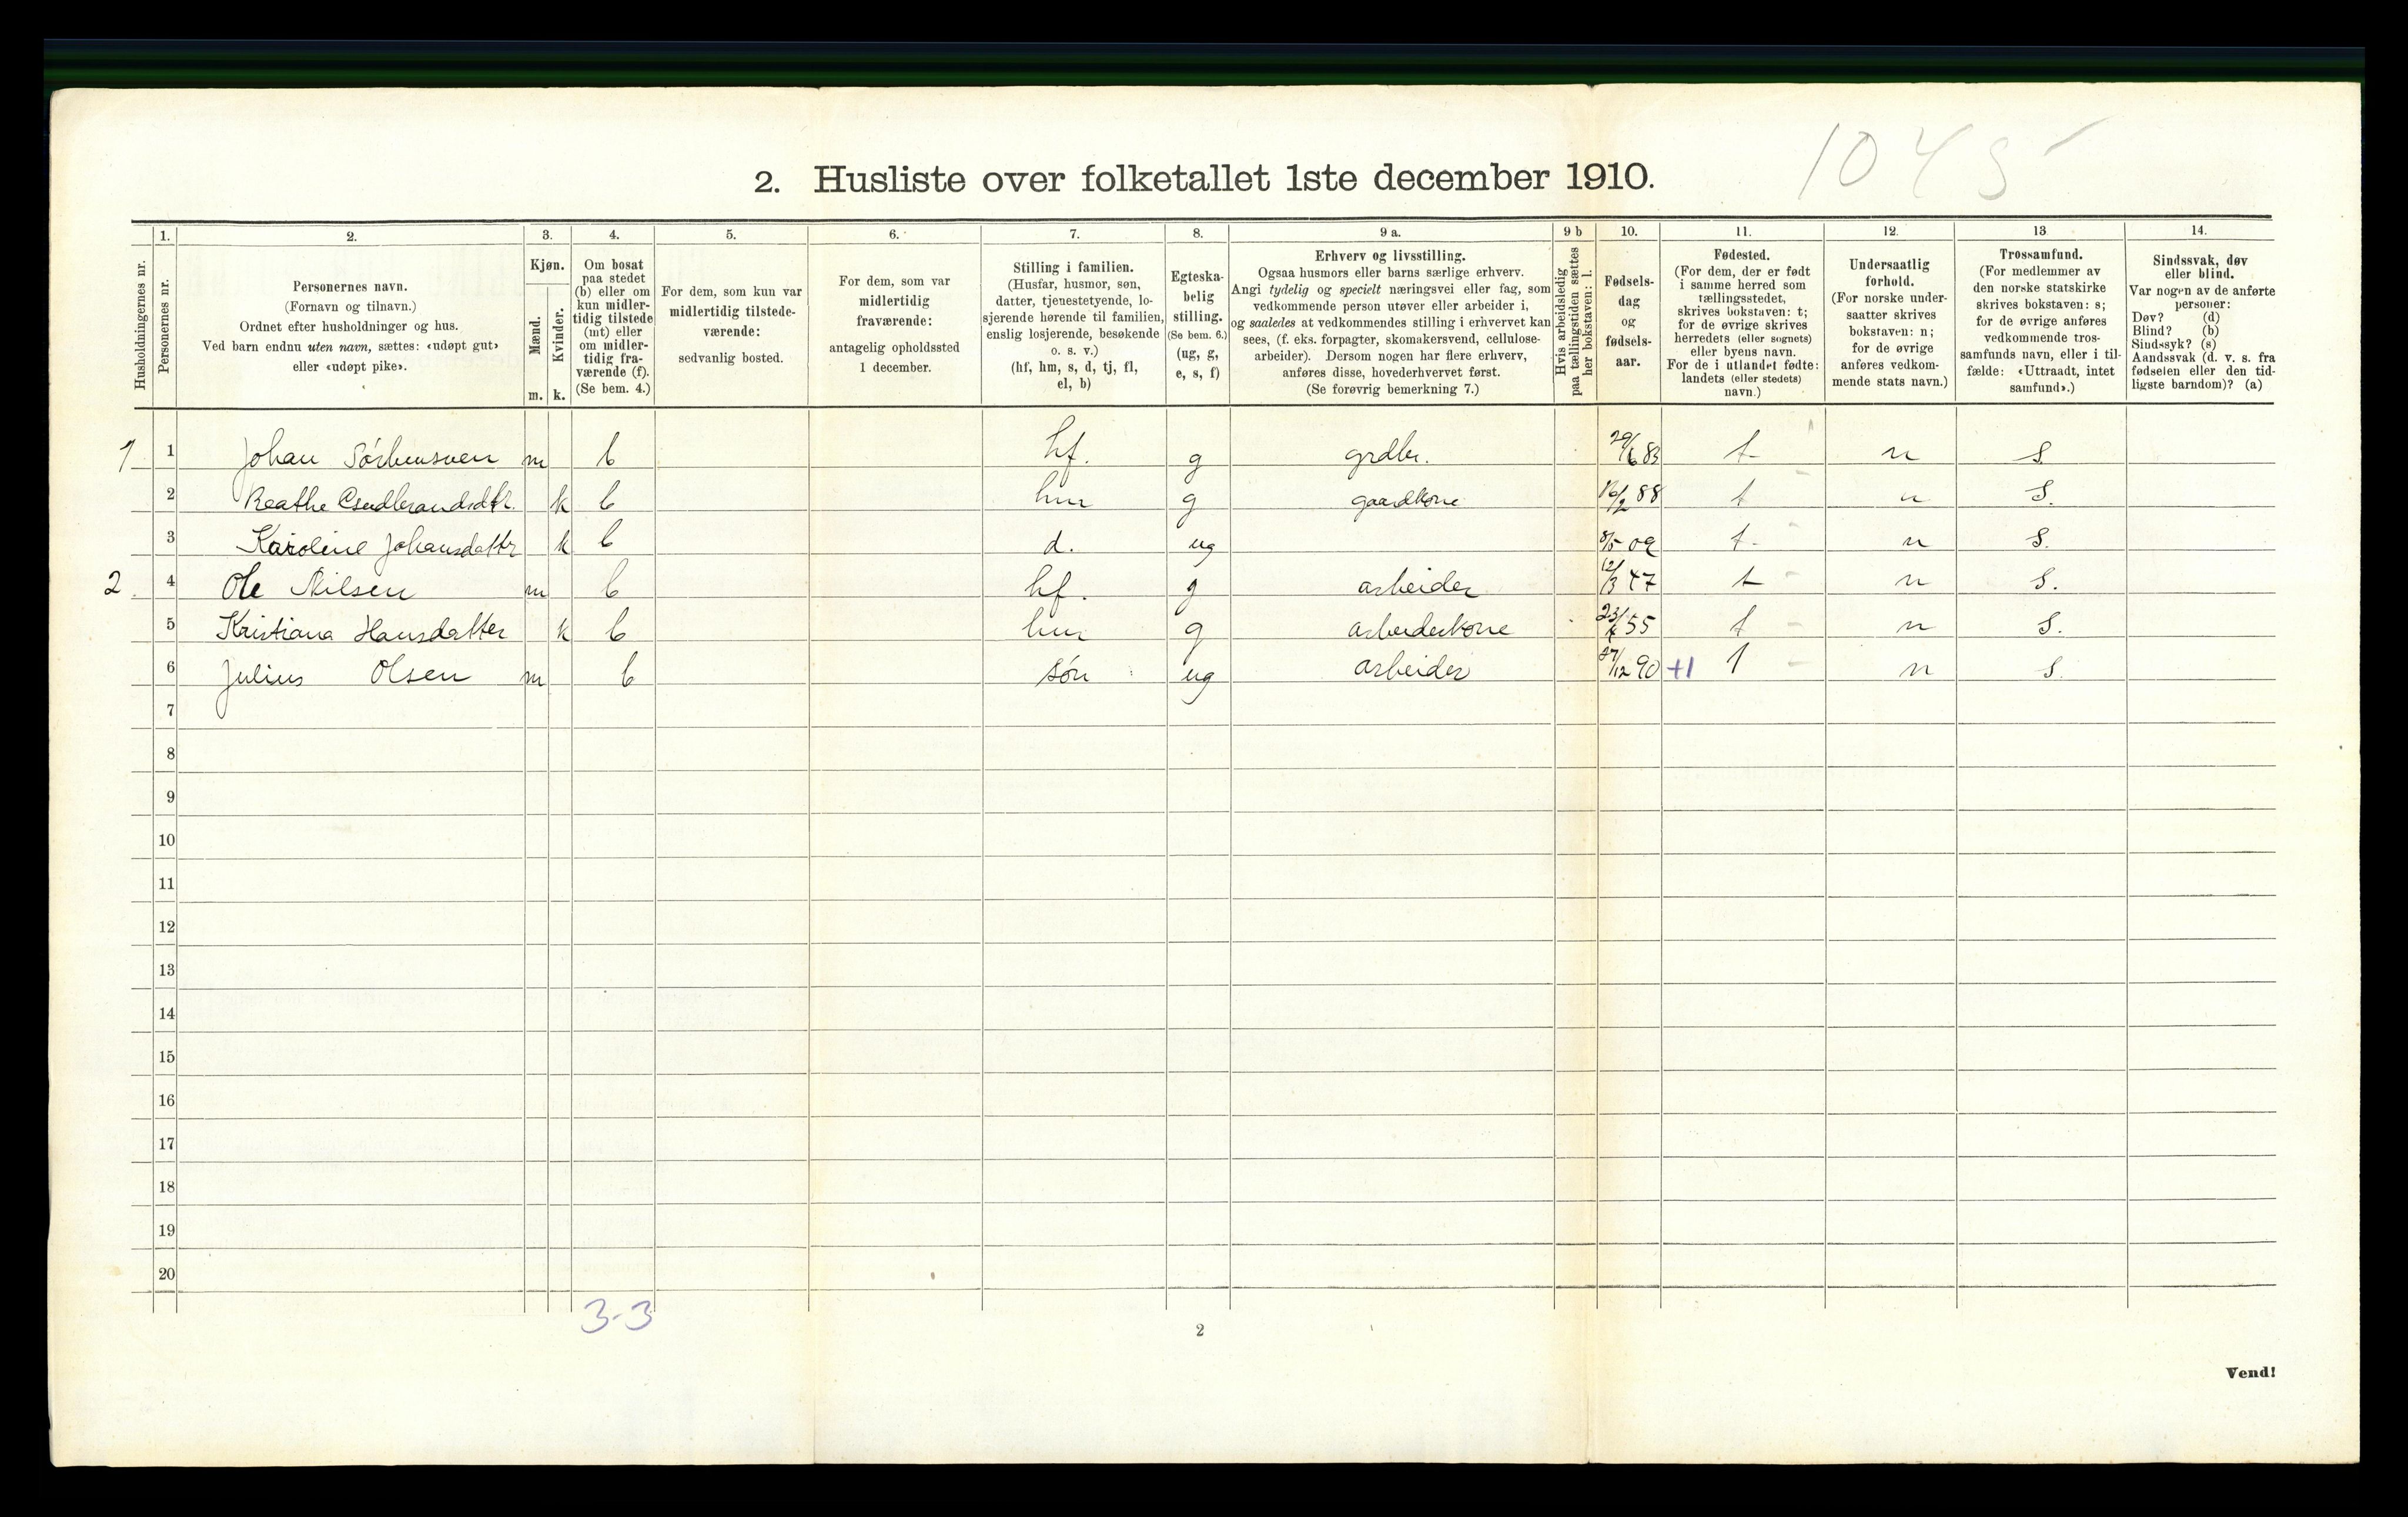 1045
2. Husliste over folketallet 1ste december 1910.
Husholdningernes nr.
1.
Personernes nr.
2.
Personernes navn.
(Fornavn og tilnavn.)
Ordnet efter husholdninger og hus.
Ved barn endnu uten navn, sættes: «udøpt gut»
eller «udøpt pike».
3.
Kjøn.
Mænd.
Kvinder.
m. k.
4.
Om bosat
paa stedet
(b) eller om
kun midler-
tidig tilstede
(mt) eller
om midler-
tidig fra-
værende (f).
(Se bem. 4.)
5.
For dem, som kun var
midlertidig tilstede-
værende:
sedvanlig bosted.
6.
For dem, som var
midlertidig
fraværende:
antagelig opholdssted
1 december.
7.
Stilling i familien.
(Husfar, husmor, søn,
datter, tjenestetyende, lo-
sjerende hørende til familien,
enslig losjerende, besøkende
o. s. v.)
(hf, hm, s, d, tj, fl,
el, b)
8.
Egteska-
belig
stilling.
(Se bem. 6.)
(ug, g,
e, s, f)
9 a.
Erhverv og livsstilling.
Ogsaa husmors eller barns særlige erhverv.
Angi tydelig og specielt næringsvei eller fag, som
vedkommende person utøver eller arbeider i,
og saaledes at vedkommendes stilling i erhvervet kan
sees, (f. eks. forpagter, skomakersvend, cellulose-
arbeider). Dersom nogen har flere erhverv,
anføres disse, hovederhvervet først.
(Se forøvrig bemerkning 7.)
9 b
Hvis arbeidsledig
paa tællingstiden sættes
her bokstaven: l.
10.
Fødsels-
dag
og
fødsels-
aar.
11.
Fødested.
(For dem, der er født
i samme herred som
tællingsstedet,
skrives bokstaven: t;
for de øvrige skrives
herredets (eller sognets)
eller byens navn.
For de i utlandet fødte:
landets (eller stedets)
navn.)
12.
Undersaatlig
forhold.
(For norske under-
saatter skrives
bokstaven: n;
for de øvrige
anføres vedkom-
mende stats navn.)
13
Trossamfund.
(For medlemmer av
den norske statskirke
skrives bokstaven: s;
for de øvrige anføres
vedkommende tros-
samfunds navn, eller i til-
fælde: «Uttraadt, intet
samfund».)
14.
Sindssvak, døv
eller blind.
Var nogen av de anførte
personer:
Døv? (d)
Blind? (b)
Sindssyk? (s)
Aandssvak (d. v. s. fra
fødselen eller den tid-
ligste barndom)? (a)
1 1 Johan m b hf. g grdbr. 29/6 83 t n s.
2 Beathe k b hm g gaardkone 16/2 88 t n s.
3 Karoline Johansdattr k b d. ug 8/5 09 t n s.
2 4 Ole Nilsen m b hf. g arbeider 12/3 47 t n s.
5 Kristiana Hansdatter k b hm g arbeiderkone 23/ 55 t n s.
6 Julius Olsen m b søn ug arbeider 27/12 90 +1 t n s.
7
8
9
10
11
12
13
14
15
16
17
18
19
20
3-3
2
Vend!